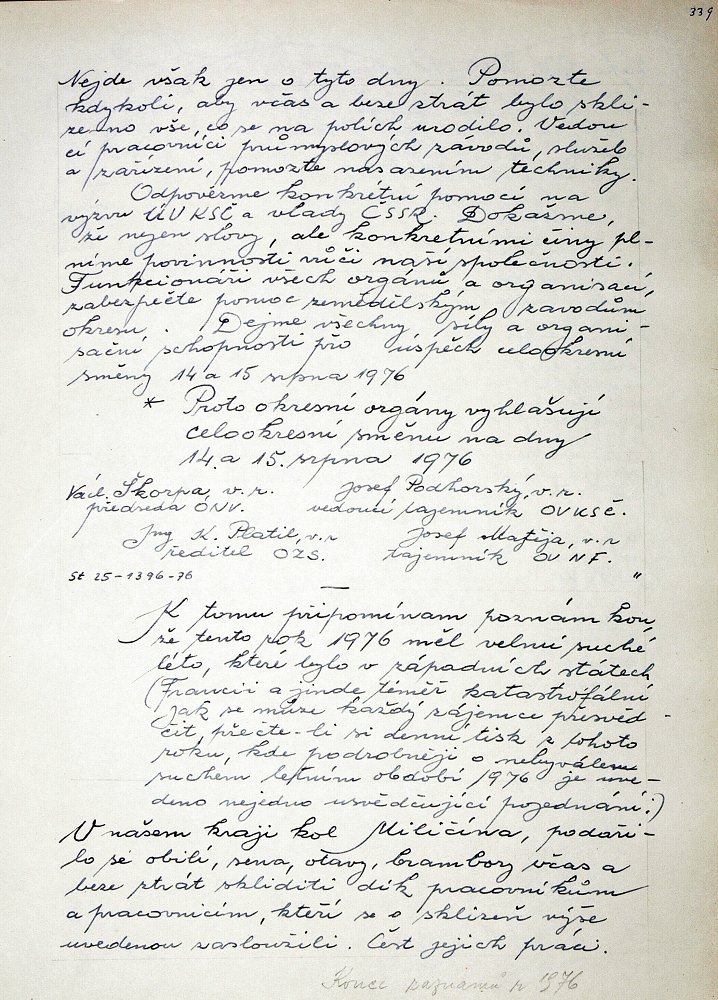 339
Nejde však jen o tyto dny. Pomozte
kdykoli, aby včas a beze strát bylo skli-
zeno vše, co se na polích urodilo. Vedou
cí pracovníci průmyslových závodů, služeb
a zařízení, pomozte nasazením techniky.
Odpovězme konkrétní pomocí na
výzvu ÚV KSČ a vlády ČSSR. Dokažme,
že nejen slovy, ale konkretními činy pl-
níme povinnosti vůči naší společnosti.
Funkcionáři všech orgánů a organisací,
zabezpečte pomoc zemědělským závodům
okresu. Dejme všechny síly a organi-
sační schopnosti pro úspěch celookresní
směny 14 a 15 srpna 1976
* Proto okresní orgány vyhlašují
celookresní směnu na dny
14. a 15. srpna 1976
Václ. Škorpa, v. r. Josef Podhorský, v. r.
předseda ONV. vedoucí tajemník OVKSČ.
Ing K. Platil, v. r Josef Matěja, v. r
ředitel OZS. tajemník OV NF.
St 25-1396-76 "
K tomu připomínam poznám kou,
že tento rok 1976 měl velmi suché
léto, které bylo v západních státech
(Francii a jinde téměř katastrofální
jak se může každý zájemce přesvěd-
čit, přečte-li si denní tisk z tohoto
roku, kde podrobněji o nebyvalém
suchem letním období 1976 je uve-
deno nejedno usvědčující pojednání:)
V našem kraji kol Miličína, podaři-
lo se obilí, sena, otavy, brambory včas a
beze ztrát skliditi dík pracovníkům
a pracovnicím, kteří se o sklizeň výše
uvedenou zasloužili. Čest jejich práci.
Konec záznamů r 1976